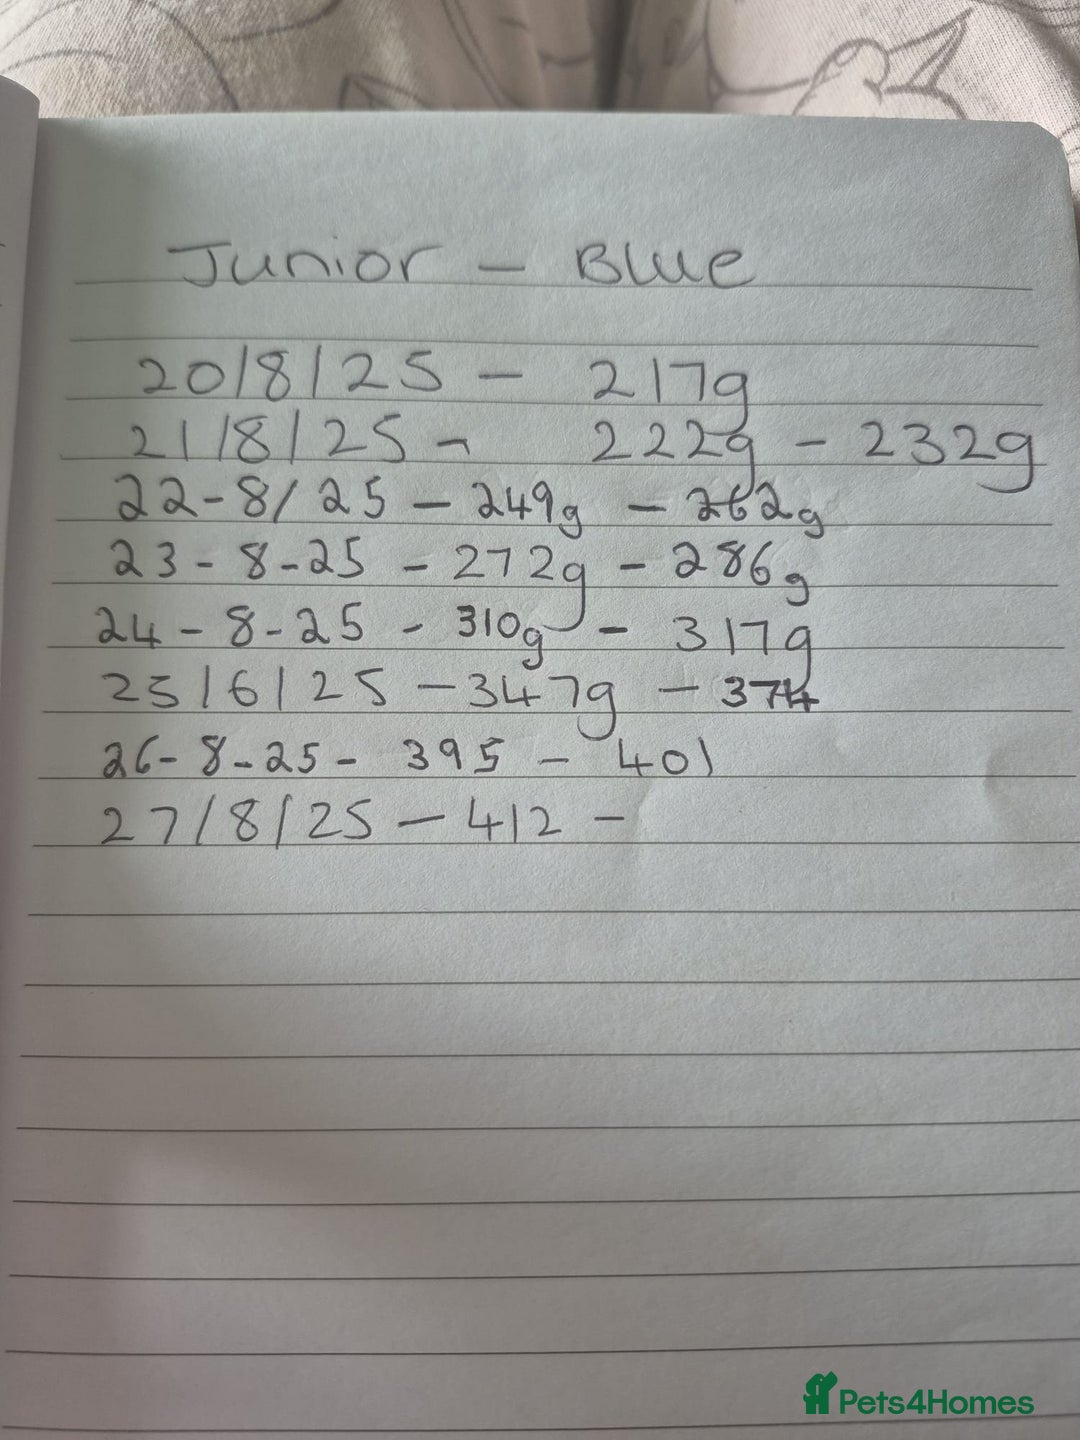 Junior - Blue
20/8/25 - 217g
21/8/25 - 222g - 232g
22-8/25 - 249g - 262g
23-8-25 - 272g - 286g
24-8-25 - 310g - 317g
25/6/25 - 347g - 374
26-8-25 - 395 - 401
27/8/25 - 412 -
Pets4Homes